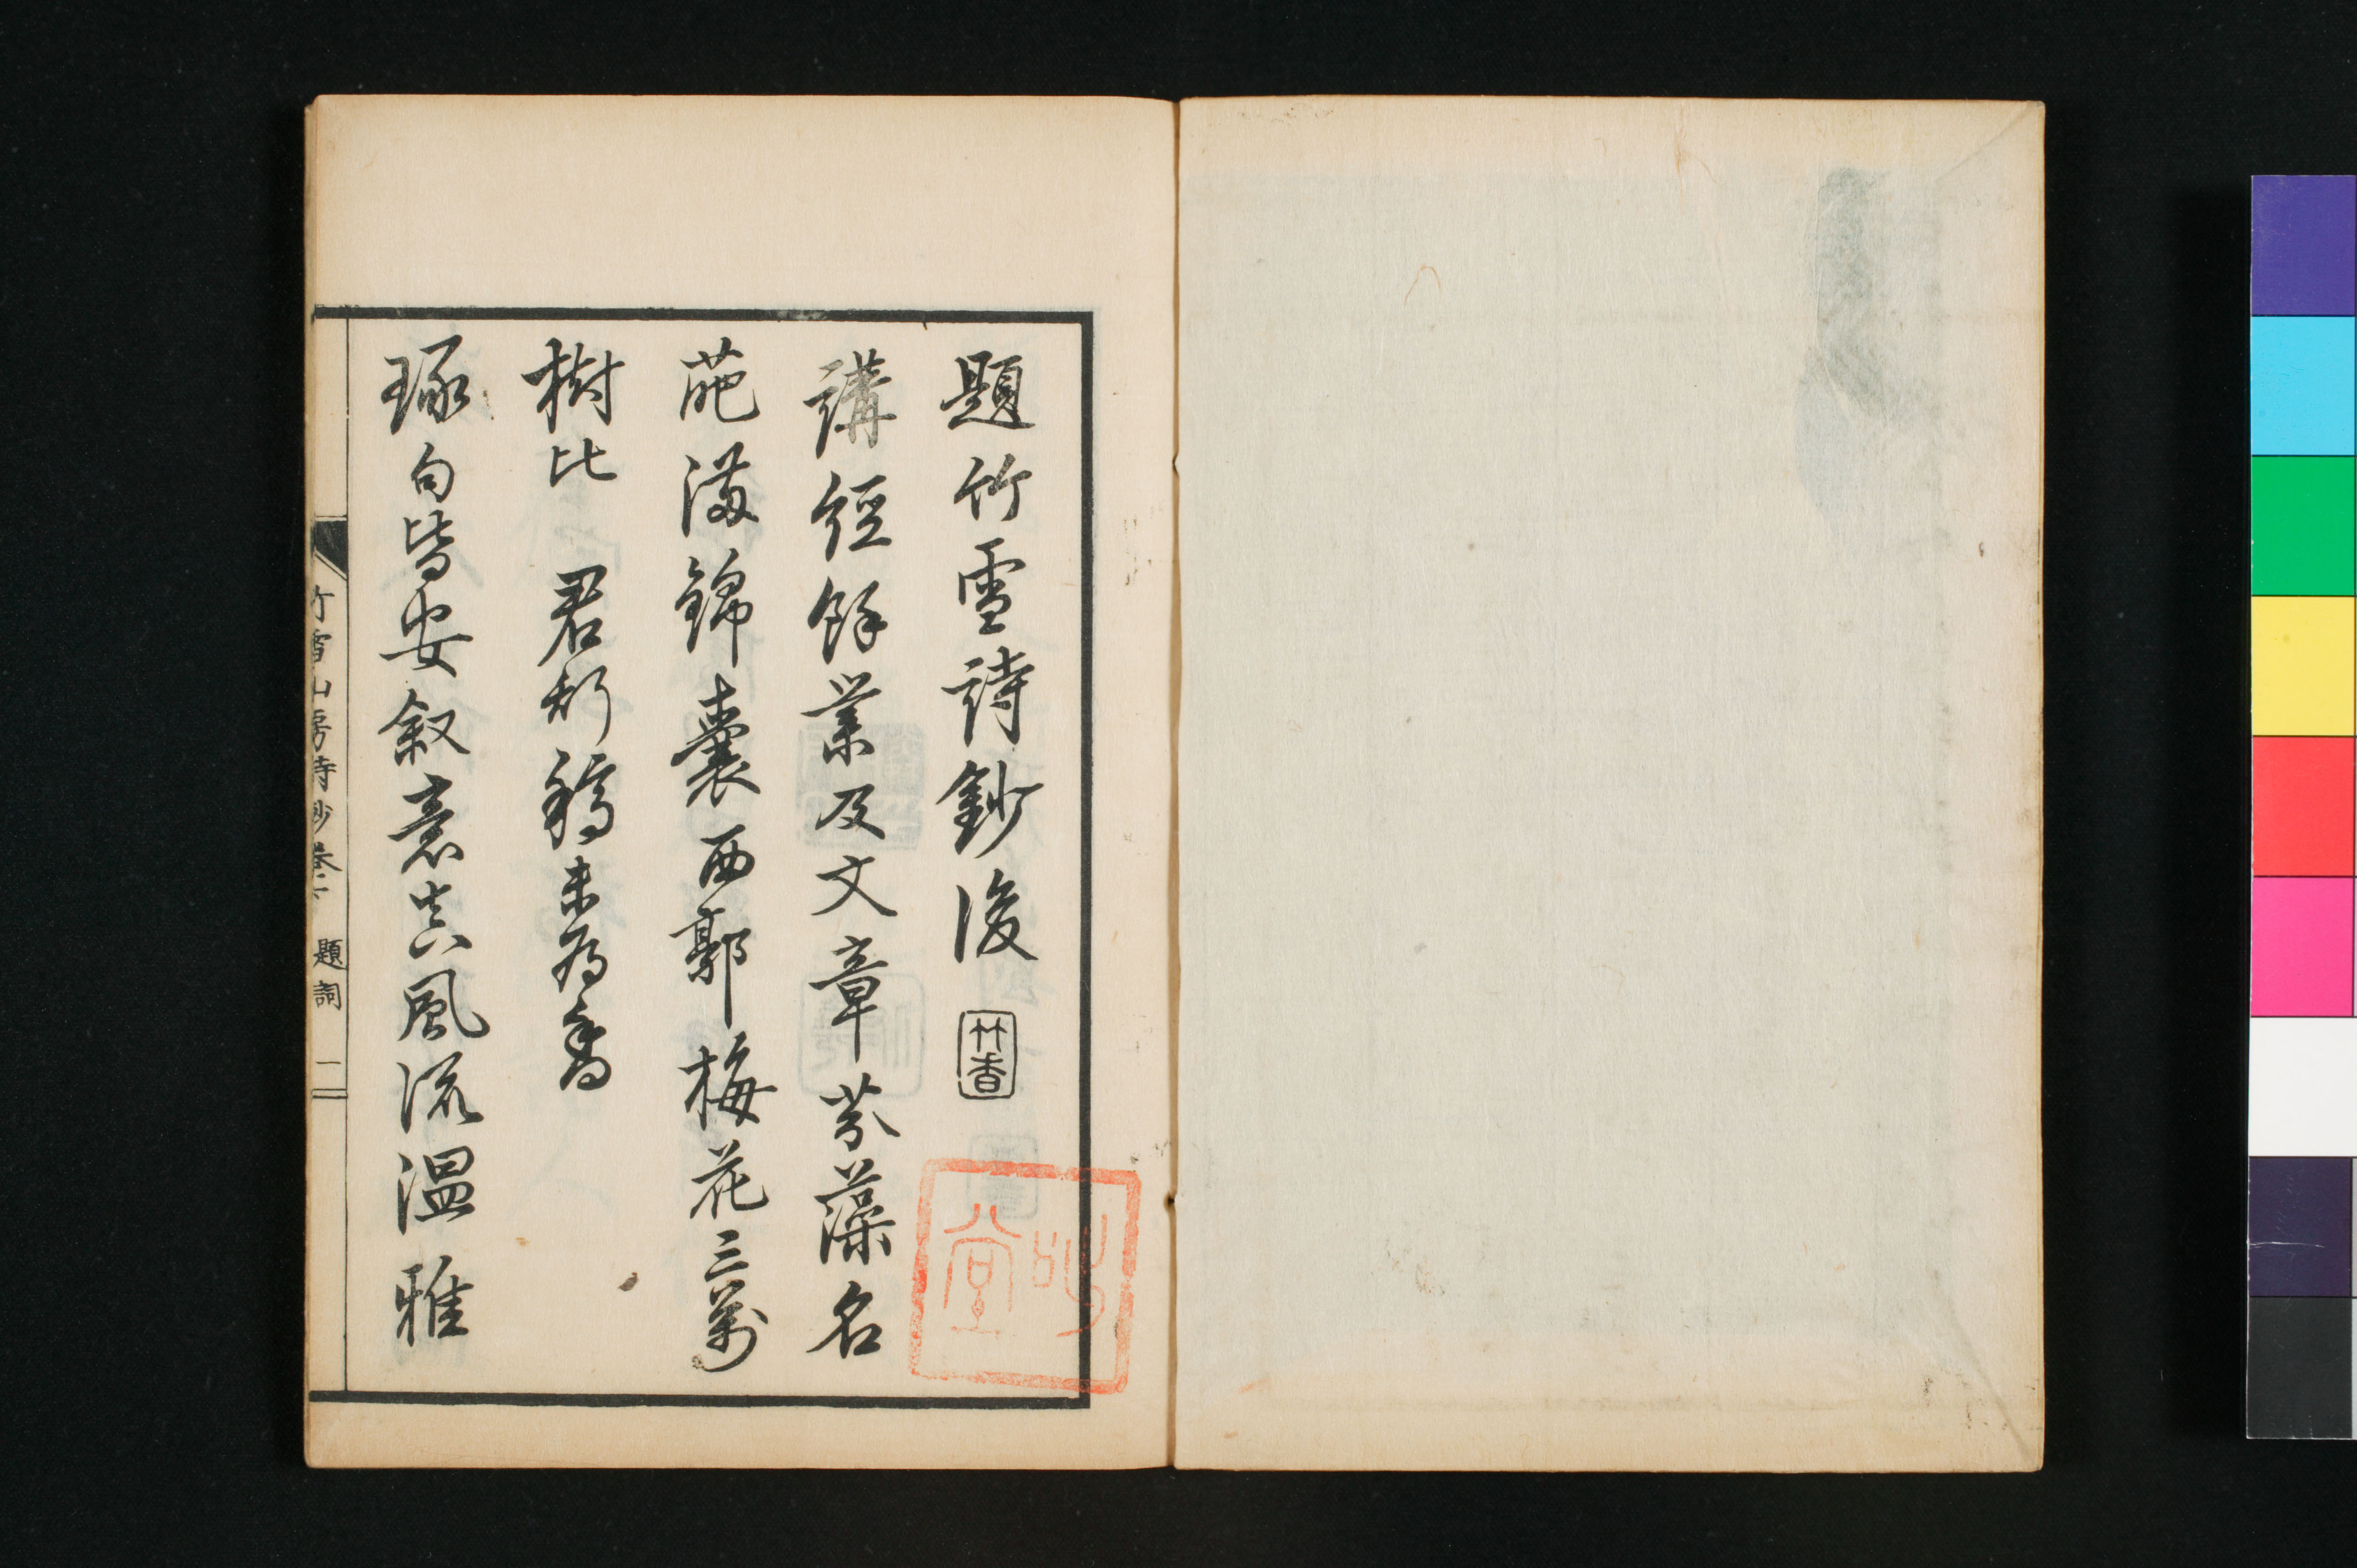 題竹雪詩鈔後 竹香
講經餘業及文章芬藻名
葩滿錦囊西郭梅花三萬
樹比 君新稿未為香
琢句皆安叙意真風流温雅
竹雪山房詩鈔卷下 題詞 一
堂